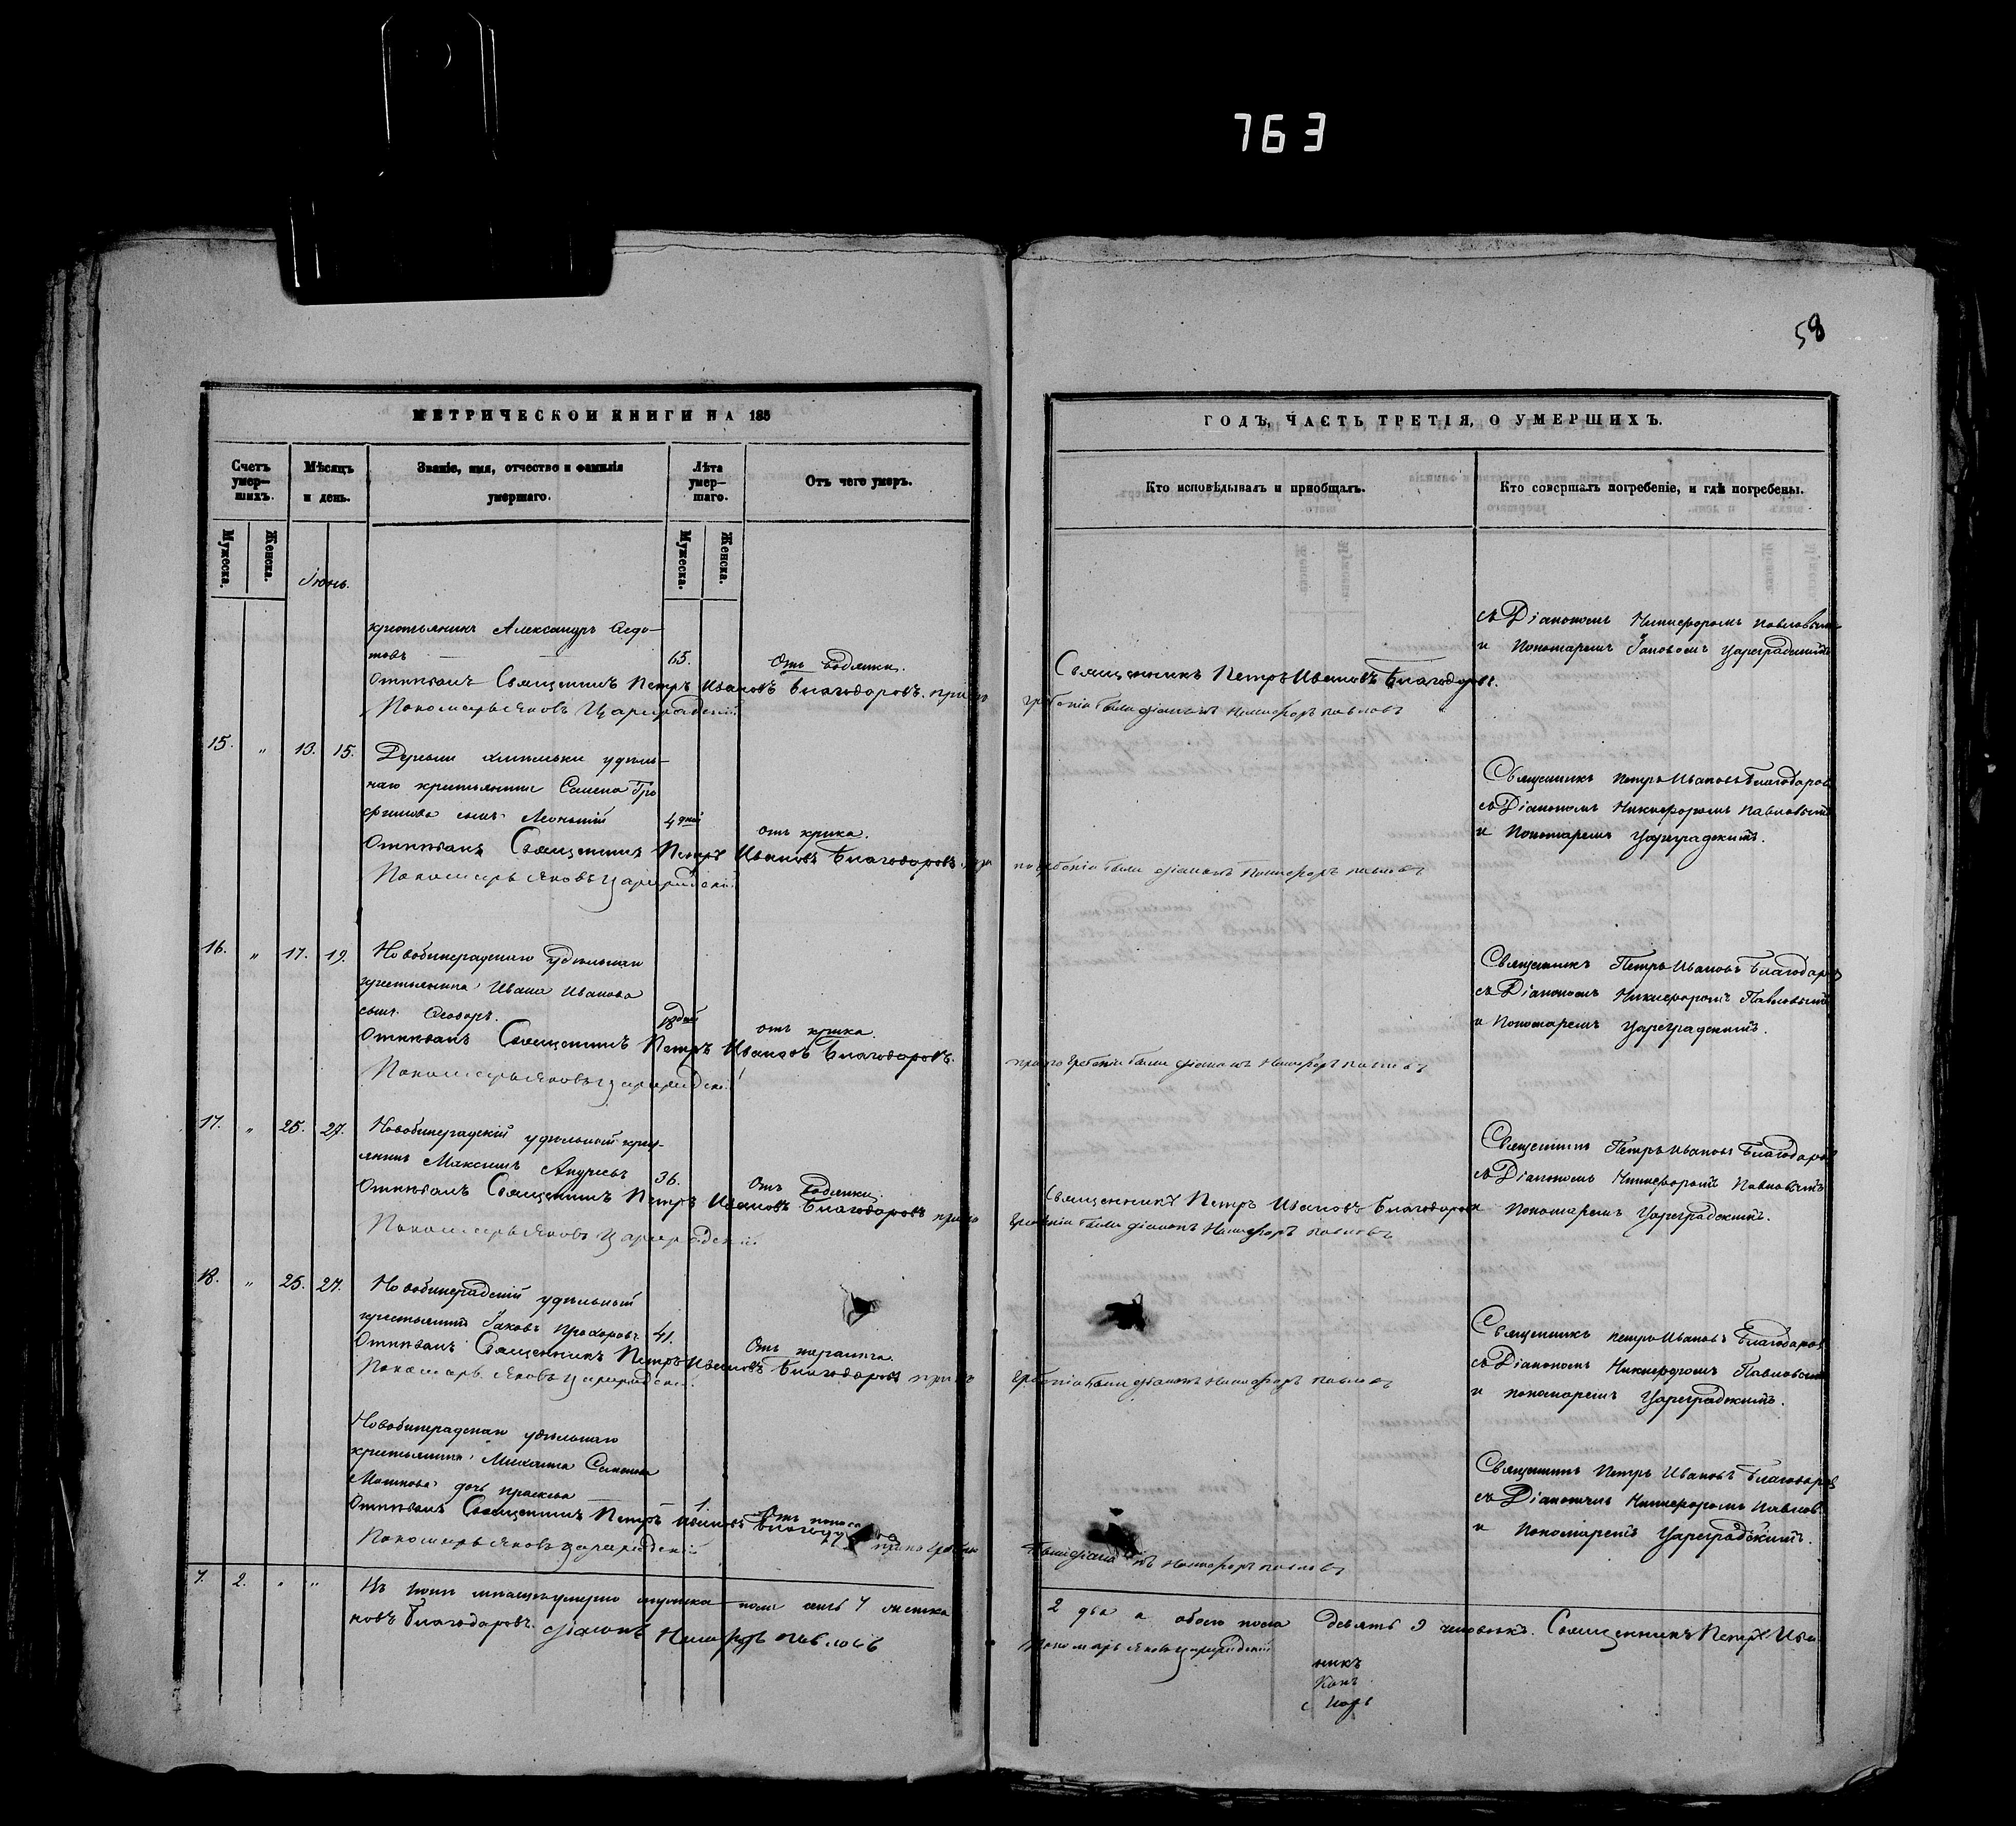 763
58
МЕТРИЧЕСКОЙ КНИГИ НА 185
Счетъ умер-шихъ.
Мѣсяцъ и день.
Званіе, имя, отчество и фамилія умершаго.
Лѣта умер-шаго.
Отъ чего умеръ.
Мужеска.
Женска.
Мужеска.
Женска.
Іюнь.
крестьянинъ Александръ Ѳедо-
товъ 65. Отъ водянки.
Отпѣвалъ Священникъ Петръ Ивановъ Благодаровъ. при по
Пономарь Яковъ Цареградскій
15. " 13. 15. Деревни удѣль-
наго крестьянина Семена Тро
фимова сынъ 4 дней отъ крика.
Отпѣвалъ Священникъ Петръ Ивановъ Благодаровъ при
Пономарь Яковъ Цареградскій
16. " 17. 19. удѣльнаго
крестьянина Ивана Иванова
сынъ Ѳеодоръ. дней отъ крика.
Отпѣвалъ Священникъ Петръ Ивановъ Благодаровъ.
Пономарь Яковъ Цареградскій
17. " 25. 27. удѣльный крес-
янинъ Максимъ Андреевъ 36. Отъ водянки.
Отпѣвалъ Священникъ Петръ Ивановъ Благодаровъ при по
Пономарь Яковъ Цареградскій
18. " 25. 27. удѣльный
крестьянинъ Іаковъ Прохоровъ 41. Отъ
Отпѣвалъ Священникъ Петръ Ивановъ Благодаровъ при по
Пономарь Яковъ Цареградскій
удѣльнаго
крестьянина Михаила Семенова
дочь Праскева 1. Отъ поноса
Отпѣвалъ Священникъ Петръ Ивановъ при погребеніи
Пономарь Яковъ Цареградскій
7. 2. " " Въ Іюнѣ мѣсяцѣ умерло мужска пола семь 7 женска
новъ Благодаровъ. Діаконъ Никифоръ Павловъ
ГОДЪ, ЧАСТЬ ТРЕТІЯ, О УМЕРШИХЪ.
Кто исповѣдывалъ и приобщалъ.
Кто совершалъ погребеніе, и гдѣ погребены.
съ Діакономъ Никифоромъ Павловымъ
и Пономаремъ Іаковомъ Цареградскимъ
Священникъ Петръ Ивановъ Благодаровъ.
гребеніи были діаконъ Никифоръ Павловъ
Священникъ Петръ Ивановъ Благодаровъ
съ Діакономъ Никифоромъ Павловымъ
и Пономаремъ Цареградскимъ.
погребеніи были діаконъ Никифоръ Павловъ
Священникъ Петръ Ивановъ Благодаровъ
съ Діакономъ Никифоромъ Павловымъ
и Пономаремъ Цареградскимъ.
при погребеніи были діаконъ Никифоръ Павловъ
Священникъ Петръ Ивановъ Благодаровъ
съ Діакономъ Никифоромъ Павловымъ
Священникъ Петръ Ивановъ Благодаровъ
и Пономаремъ Цареградскимъ.
гребеніи были діаконъ Никифоръ Павловъ
Священникъ Петръ Ивановъ Благодаровъ
съ Діакономъ Никифоромъ Павловымъ
и пономаремъ Цареградскимъ.
гребеніи были діаконъ Никифоръ Павловъ
Священникъ Петръ Ивановъ Благодаровъ
съ Діакономъ Никифоромъ Павлов.
и Пономаремъ Цареградскимъ.
были діаконъ Никифоръ Павловъ
2 два а обоего пола девять 9 человѣкъ. Священникъ Петръ Ива
Пономарь Яковъ Цареградскій
никъ
конъ
марь